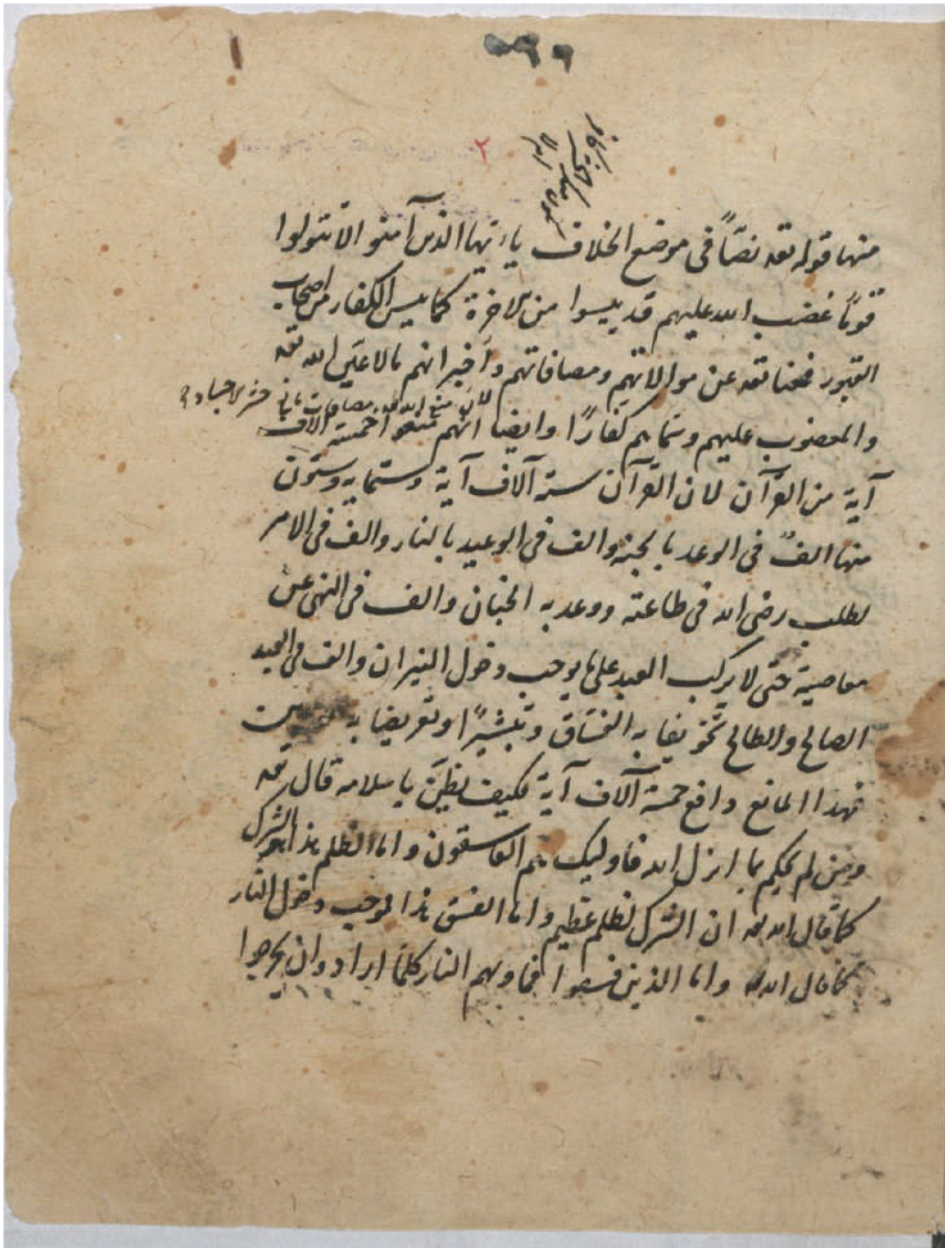 منها قوله تعه نصّاً فى موضع الخلاف ياءيّها الذين آمنو الا تتولوا
قوماً غضب الله عليهم قد ييسوا من الاخرة كما يس الكفار من اصحاب
القبور فنحنا تعه عن موالاتهم ومصافاتهم واخبر انهم ملاعين الله تعه
والمغضوب عليهم وسمّا هم كفارًا وايضا انهم منعوا خمسة الآف
آية من القرآن لان القرآن ستة آلاف آية وستمايه وستون
منها الفٌ فى الوعد بالجنة والف فى الوعيد بالنار والف فى الامر
لطلب رضى الله فى طاعته ووعد به الجنان والف فى النهى عن
معاصية حتى لا يركب العبد على ما يوجب دخول النيران والف فى
الصالح والطالح تخويفا به الفساق وتبشيرًا وتعريضا به
فهذا المانع دافع خمسة آلاف آية فكيف يظنّ با سلامه قال تعه
ومن لم يحكم بما انزل الله فاوليك هم الفاسقون واما الظلم هذا هو الشرك
كما قال الله تعه ان الشرك لظلم عظيم واما الفسق هذا لوجب دخول النار
كما قال الله تعه واما الذين فسقوا فماويهم النار كلما ارادوان يخرجوا